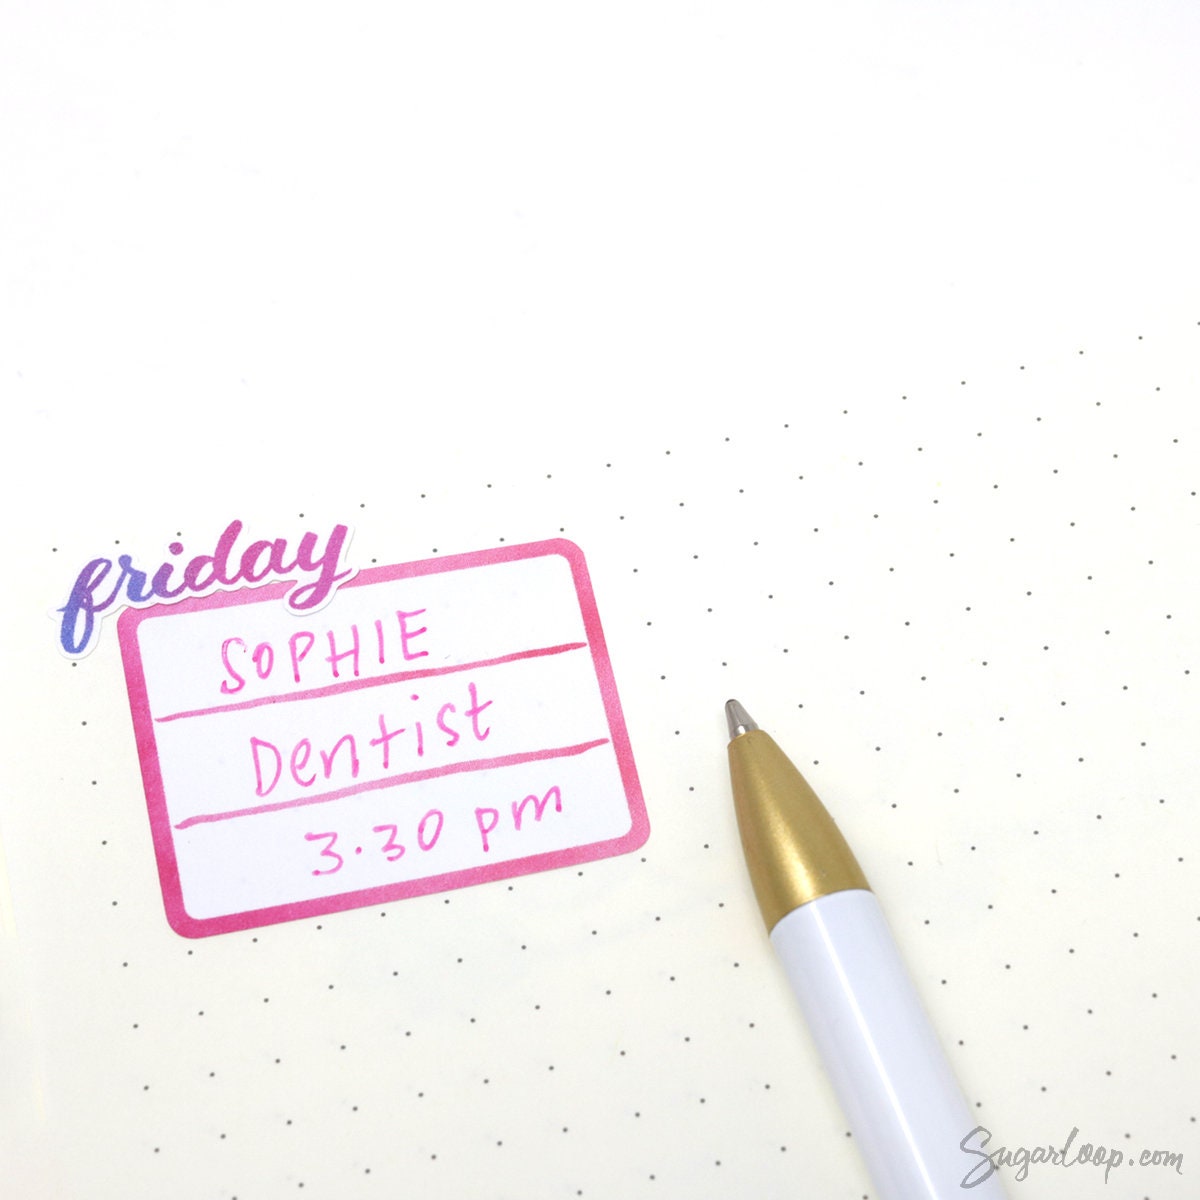 friday
SOPHIE
Dentist
3.30 pm
Sugarloop.com